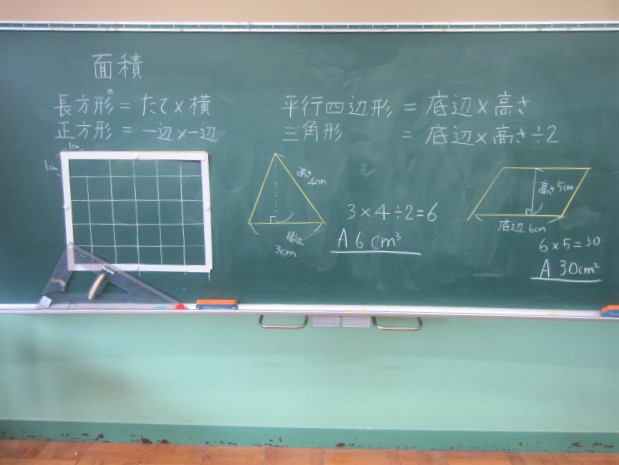 面積
長方形=たて×横
正方形=一辺×一辺
平行四辺形=底辺×高さ
三角形=底辺×高さ÷2
1cm
1cm
高さ
4cm
底辺
3cm
3×4÷2=6
A 6cm³
高さ5cm
底辺 6cm
6×5=30
A 30cm²